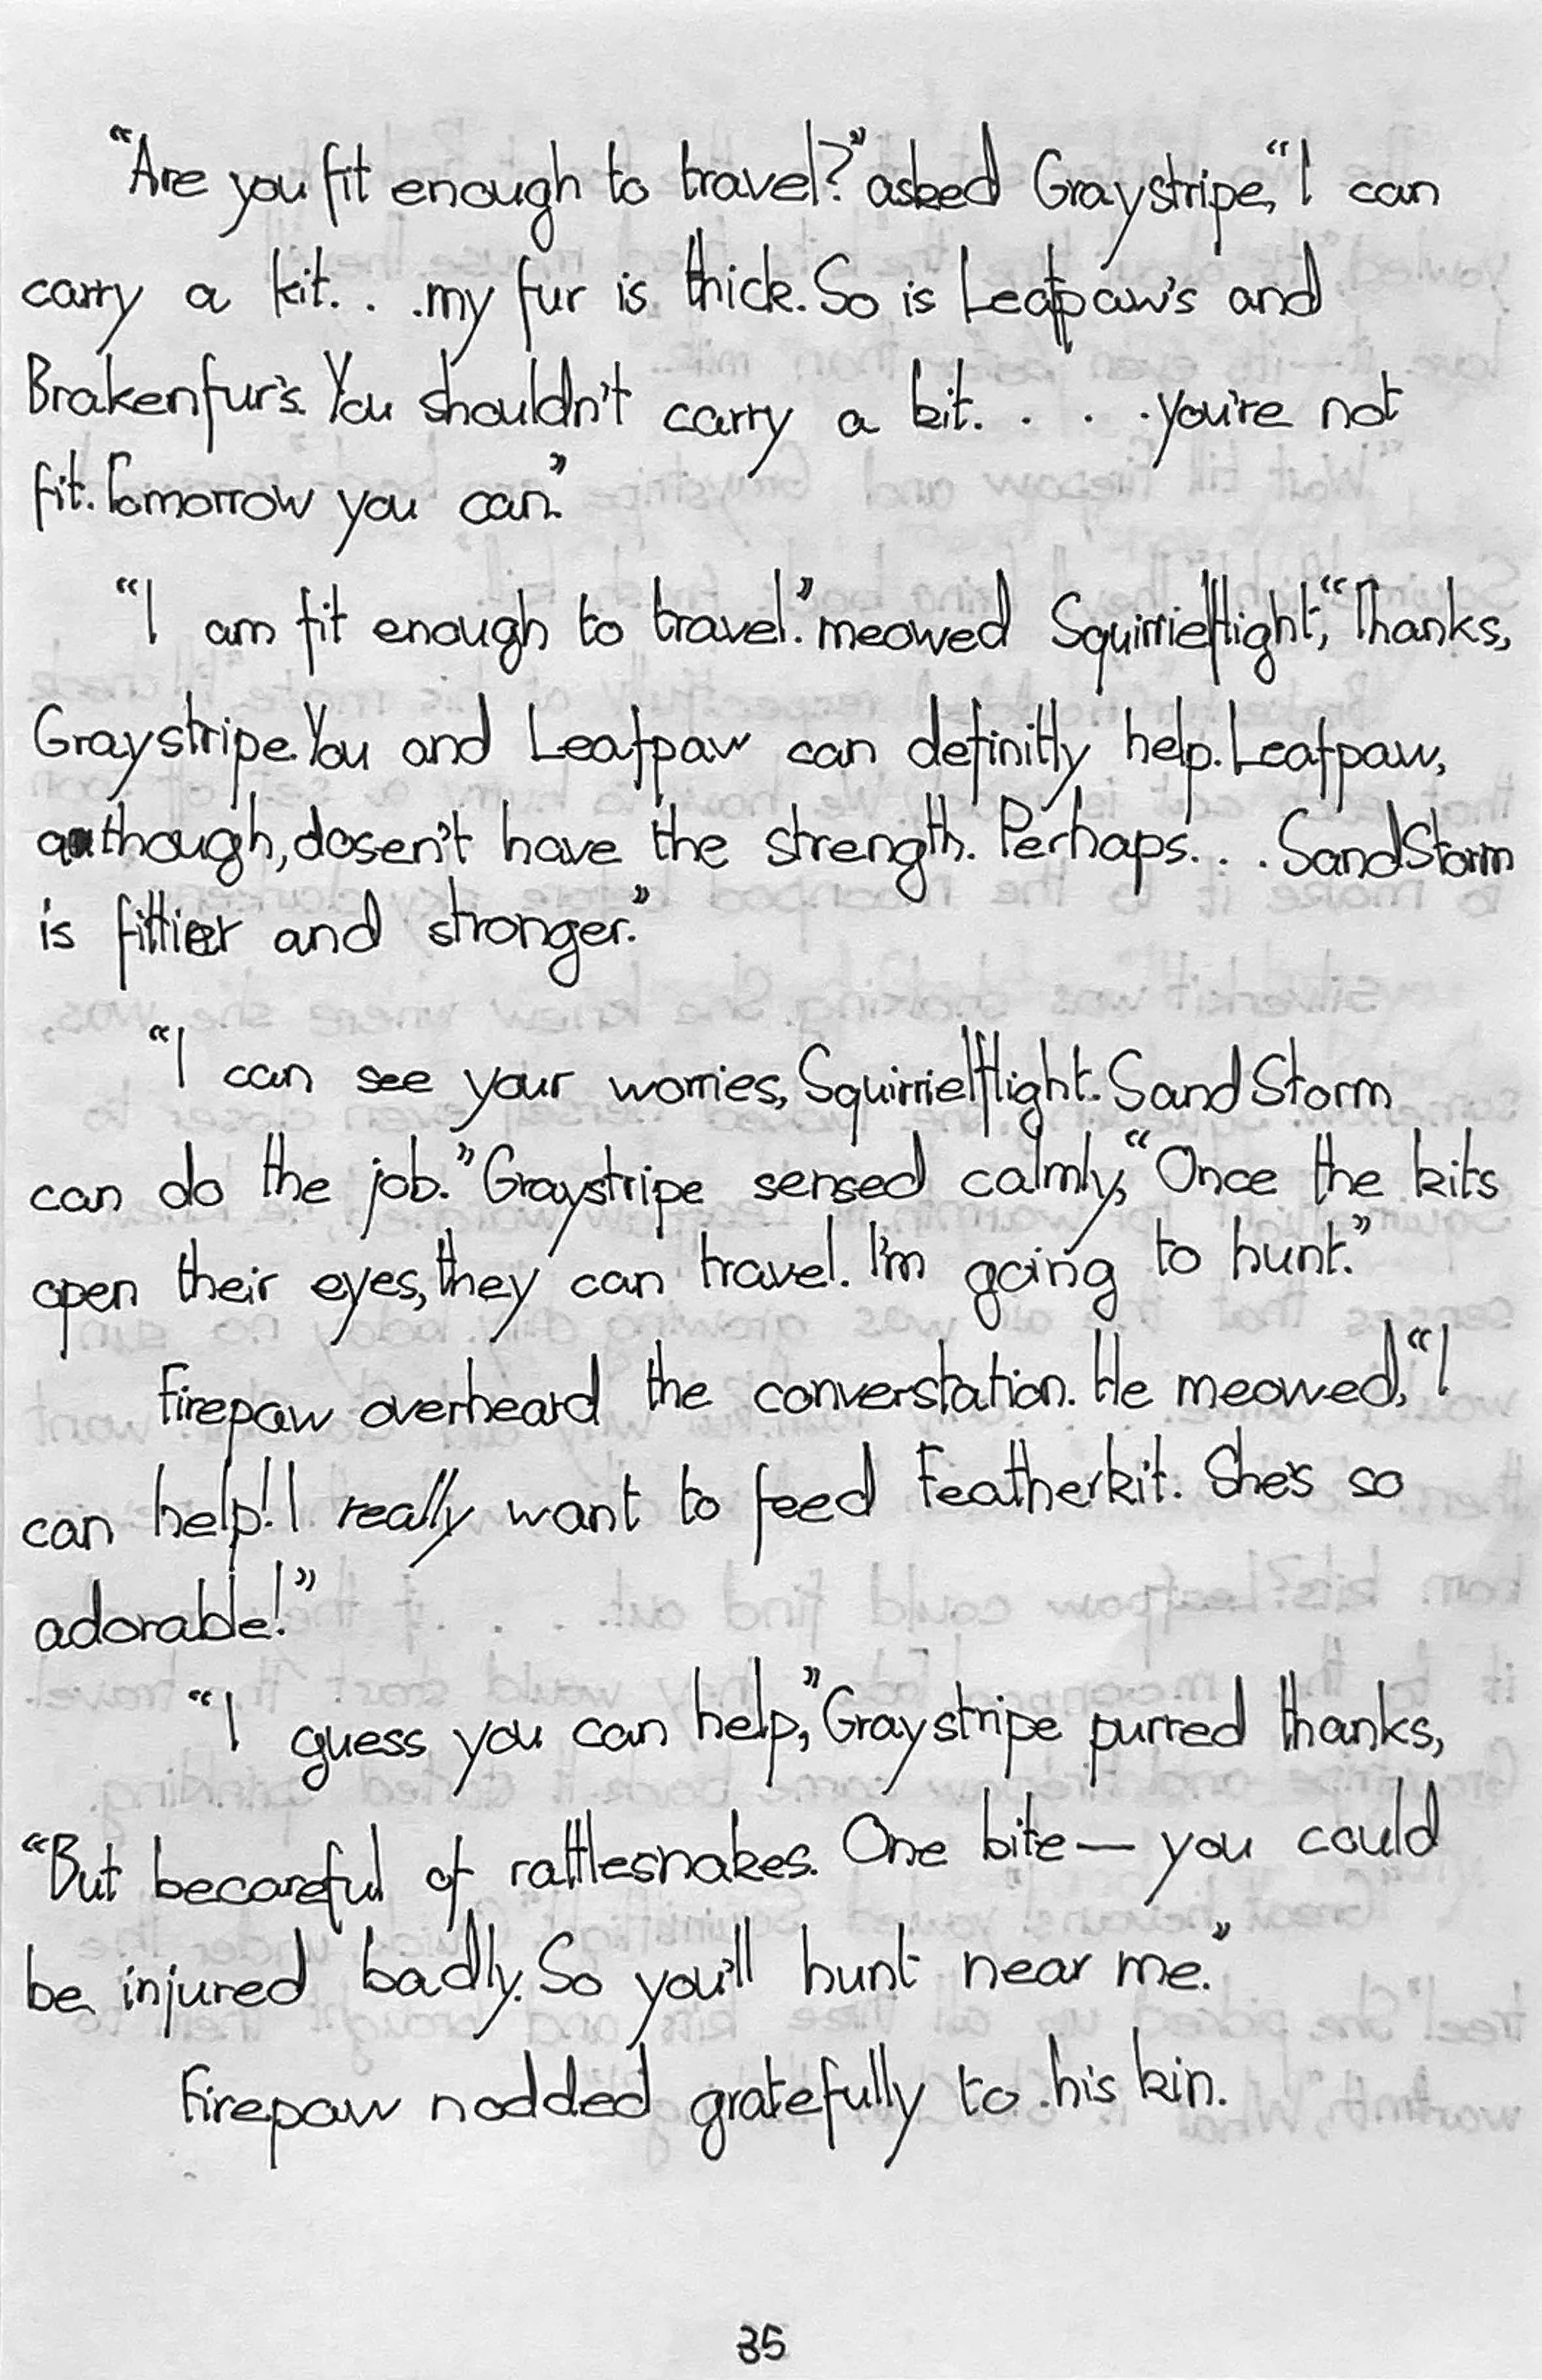 “Are you fit enough to travel?” asked Graystripe, “I can
carry a kit. . .my fur is thick. So is Leafpaw's and
Brakenfur's. You shouldn't carry a kit. . . .you're not
fit. Tomorrow you can.”
“I am fit enough to travel.” meowed Squirrielflight, “Thanks,
Graystripe. You and Leafpaw can definitly help. Leafpaw,
although, dosen't have the strength. Perhaps. . . SandStorm
is fittier and stronger.”
“I can see your worries, Squirrielflight. SandStorm
can do the job.” Graystripe sensed calmly, “Once the kits
open their eyes, they can travel. I'm going to hunt.”
Firepaw overheard the converstation. He meowed, “I
can help! I really want to feed Featherkit. She's so
adorable!”
“I guess you can help,” Graystripe purred thanks,
“But becareful of rattlesnakes. One bite — you could
be injured badly. So you'll hunt near me.”
Firepaw nodded gratefully to his kin.
35